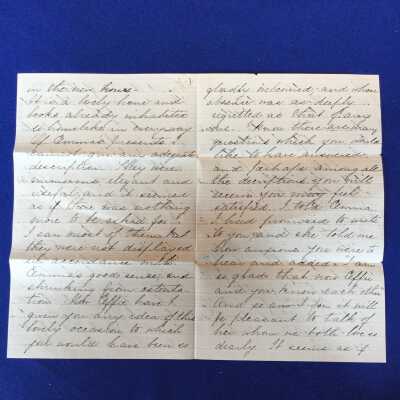 in the new home.
It is a lovely home and
looks already inhabited
& homelike in every way
of Emma's presents I
description. They were
elegant and
useful, and it seemed
as if there was nothing
more to be asked for.
I saw most of them but
they were not displayed
in accordance with
Emma's good sense, and
shrinking from ostenta-
tion. Now Effie have I
given you any idea of this
lovely occasion to which
you would have been so
gladly welcomed, and whose
absence was as deeply
regretted as that of any
one. I know there are many
questions which you would
like to have answered
and perhaps among all
the descriptions you will
receive your mind feel
satisfied. I told Emma
I had promised to write
to you and she told me
how anxious you were to
hear and added "I am
so glad that now Effie
and you know each other"
And so am I for it will
be pleasant to talk of
her whom we both love so
dearly. It seems as if